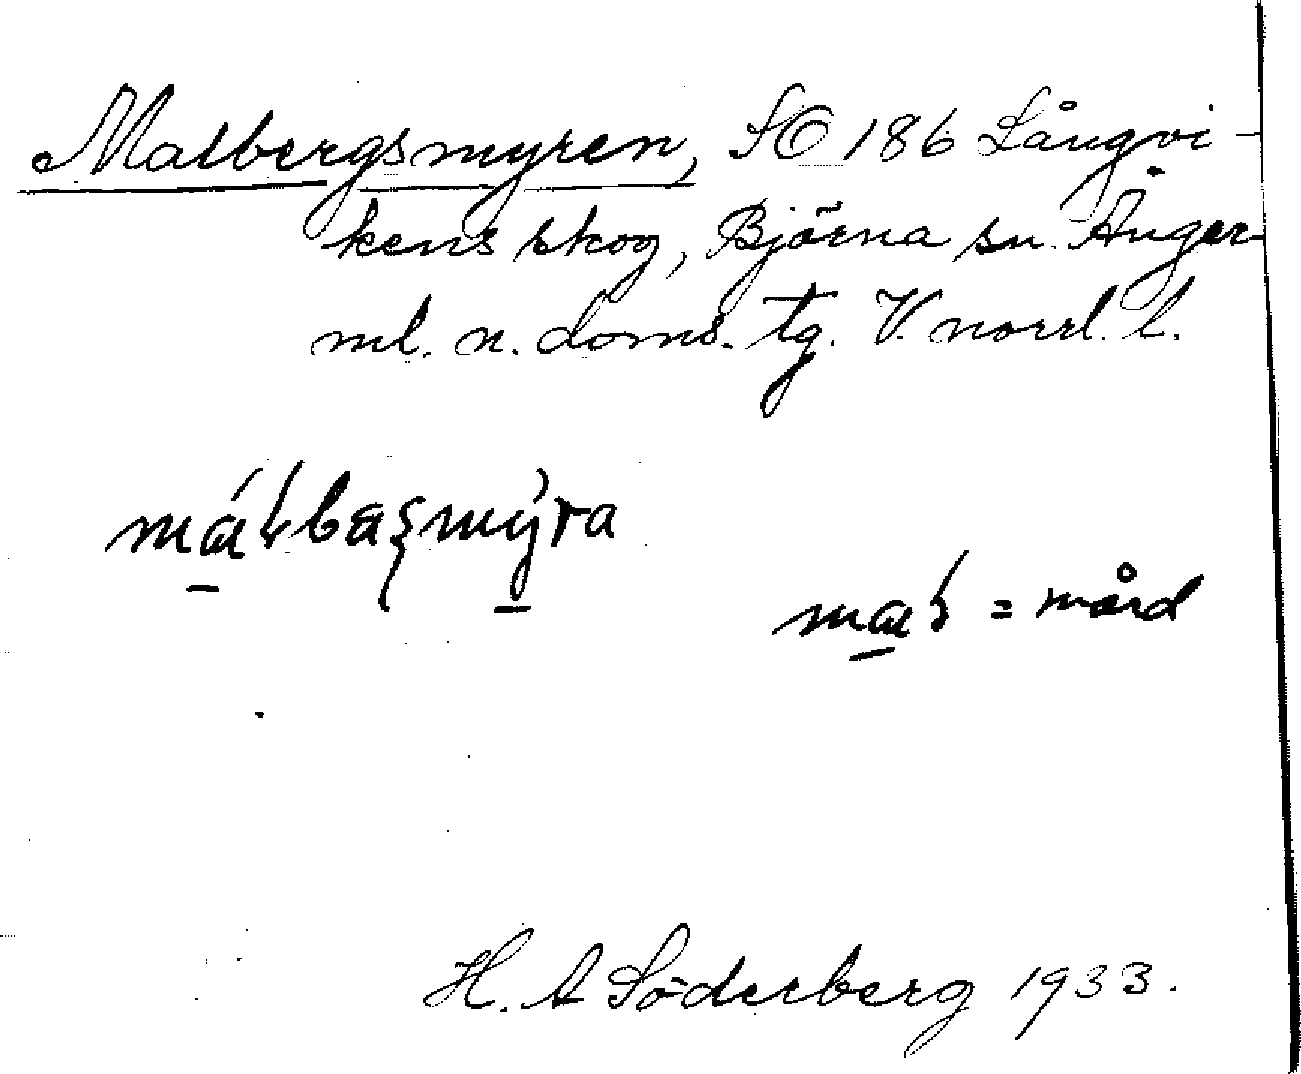 Malbergsmyren, SO 186 Långvi-
kens skog, Björna sn. Ånger-
ml. n. doms. tg. V. norrl. l.
= mård
H. A Söderberg 1933.